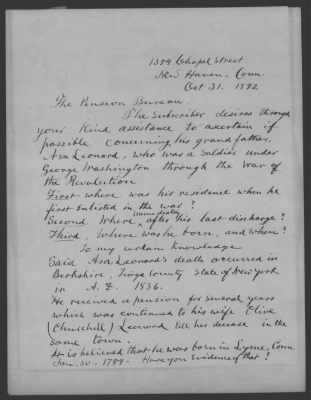 1354 Chapel Street
New Haven. Conn.
Oct 31. 1892
The Pension Bureau.
The Subscriber desires through
your kind assistance to ascertain if
possible concerning his grandfather,
Asa Leonard, who was a Soldier under
George Washington through the War of
the Revolution
First where was his residence when he
first enlisted in the war?
immediately
Second, Where, after his last discharge?
Third, Where was he born, and when?
To my certain knowledge
Said Asa Leonard's death occurred in
Berkshire, Tioga County State of New York
in A. D. 1836.
He received a pension for several years
which was continued to his wife Olive
(Churchill) Leonard till her decease in the
same town.
It is believed that he was born in Lyme, Conn.
Jan. 30. 1759. Have you evidence of that?